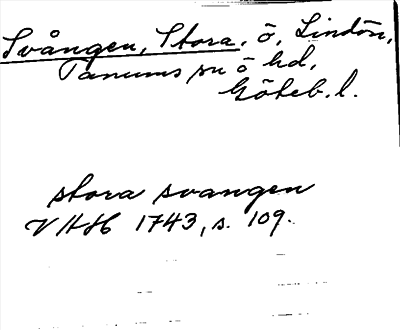 Svången, Stora, ö, Lindön,
Tanums sn o hd,
Göteb. l.
stora svangen
VHAH 1743, s. 109.